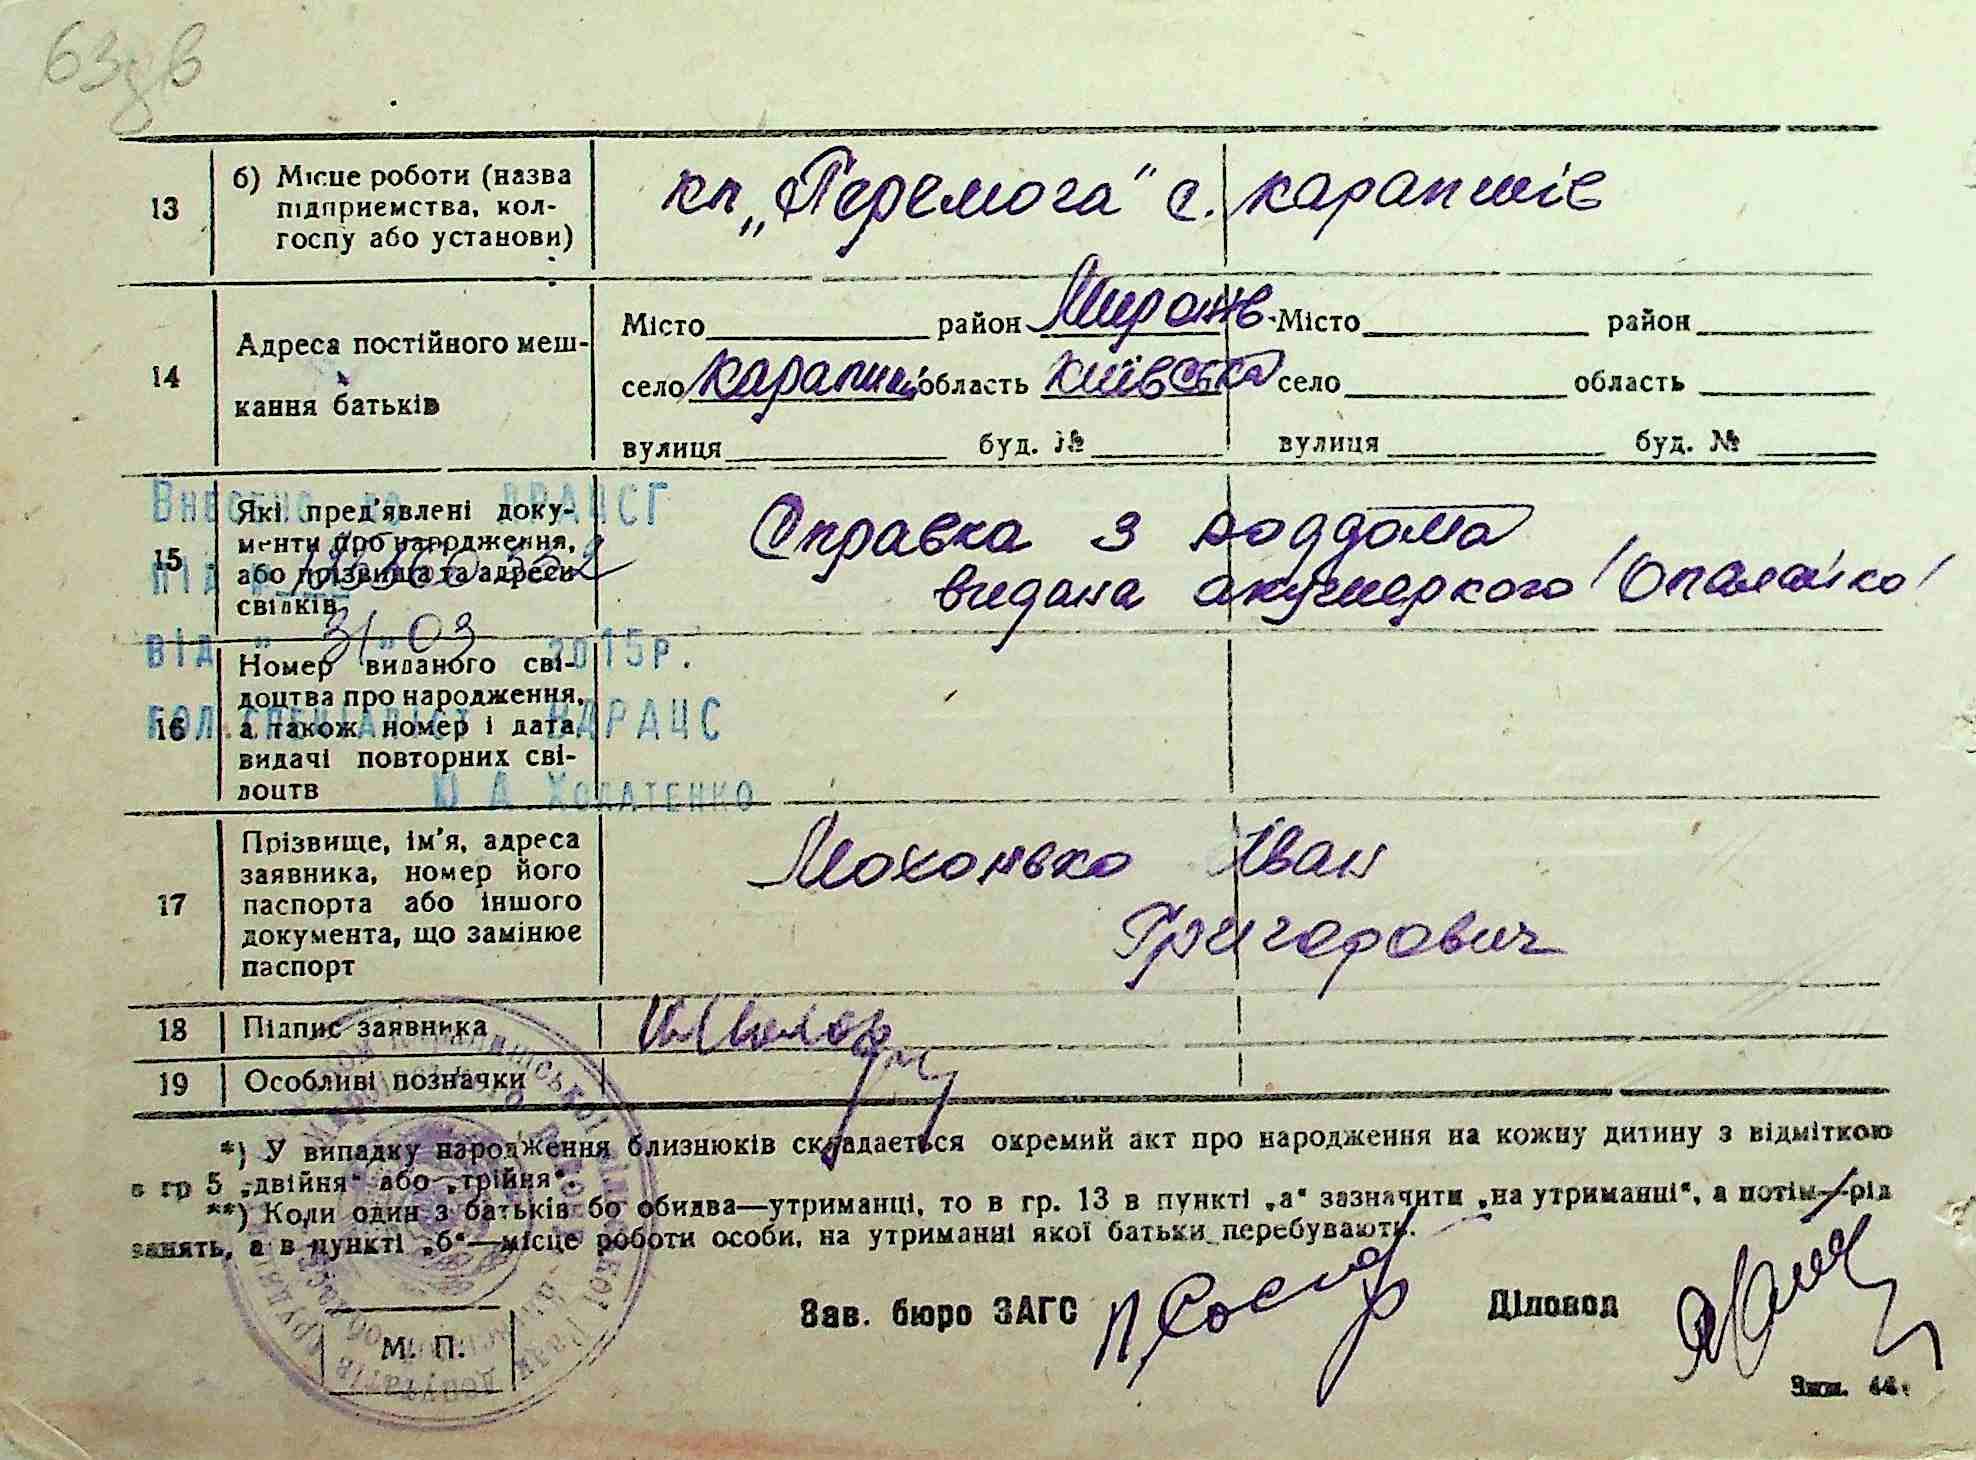 63
13
б) Місце роботи (назва
підприємства, кол-
госпу або установи)
кп „Перемога" с. карапишів
14
Адреса постійного меш-
кання батьків
Місто район Миронів. Місто район
село карапиші область київська село область
вулиця буд. № вулиця буд. №
Внесено до ДРАЦСГ
15
Які пред'явлені доку-
менти про народження,
або прізвища та адреси
свідків
Справка з роддома
видана акушеркою
від " 31 " 03 2015р.
16
Номер виданого сві-
доцтва про народження,
а також номер і дата
видачі повторних сві-
доцтв
гол.спеціаліст ВДРАЦС
Ю А Холатенко
17
Прізвище, ім'я, адреса
заявника, номер його
паспорта або іншого
документа, що замінює
паспорт
Мохонько Іван
Григорович
18
Підпис заявника
19
Особливі позначки
*) У випадку народження близнюків складається окремий акт про народження на кожну дитину з відміткою
в гр 5 „двійня" або „трійня".
**) Коли один з батьків бо обидва—утриманці, то в гр. 13 в пункті „а" зазначити „на утриманні", а потім—рід
занять, а в пункті „б"—місце роботи особи, на утриманні якої батьки перебувають.
Зав. бюро ЗАГС
Діловод
М. П.
Зам. 44